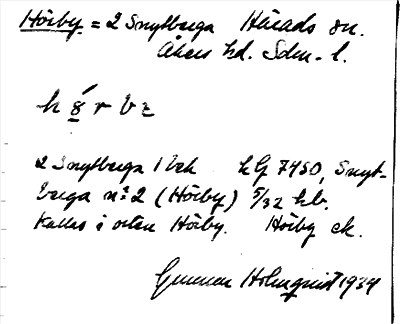 Hörby = 2 Snytberga Härads sn.
Åkers hd. Sdm. l.
h 8́ r b z
2 Snytberga 1/2 eh hG 7450, Snyt-
berga n:o 2 (Hörby) 5/32 hb.
Kallas i orten Hörby. Hörby ek.
Gunnar Holmquist 1934